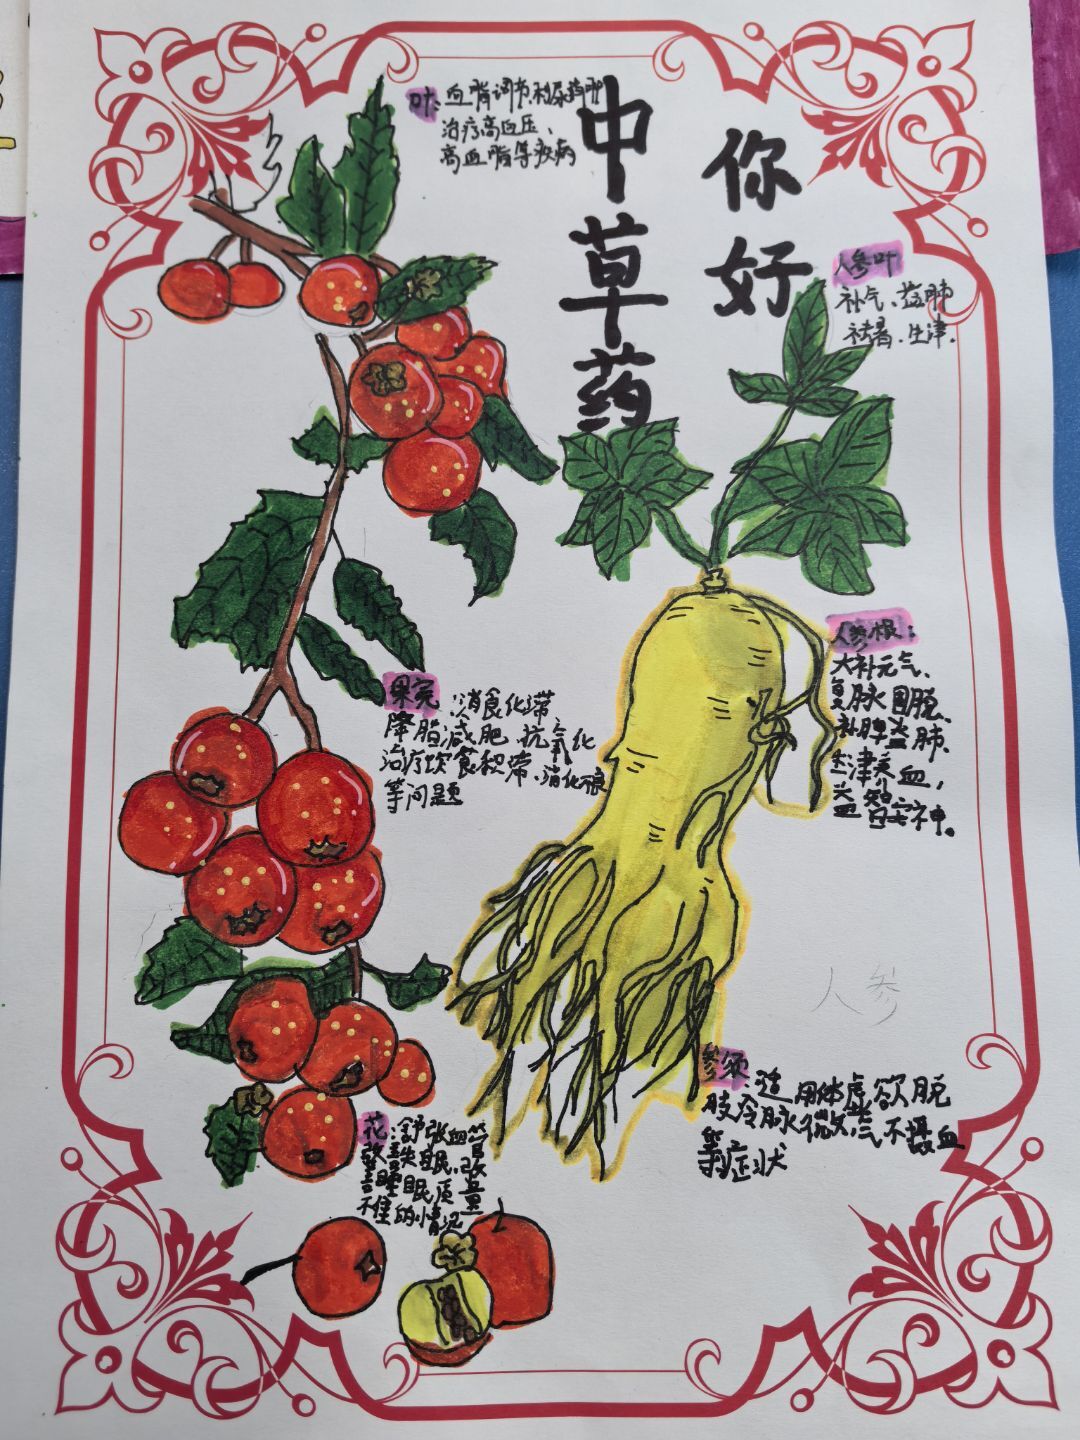 你好
中草药
叶：血脂调节、利尿药理
治疗高血压、
高血脂等疾病
人参叶
补气、益肺
祛暑、生津.
果实：消食化滞
降脂减肥 抗氧化
治疗饮食积滞、消化不良
等问题
人参根：
大补元气、
复脉固脱、
补脾益肺.
生津养血，
益智安神。
人参
参须：适用体虚欲脱
肢冷脉微、气不摄血
等症状
花：舒张血管
改善失眠、改
善睡眠质量
不佳的情况